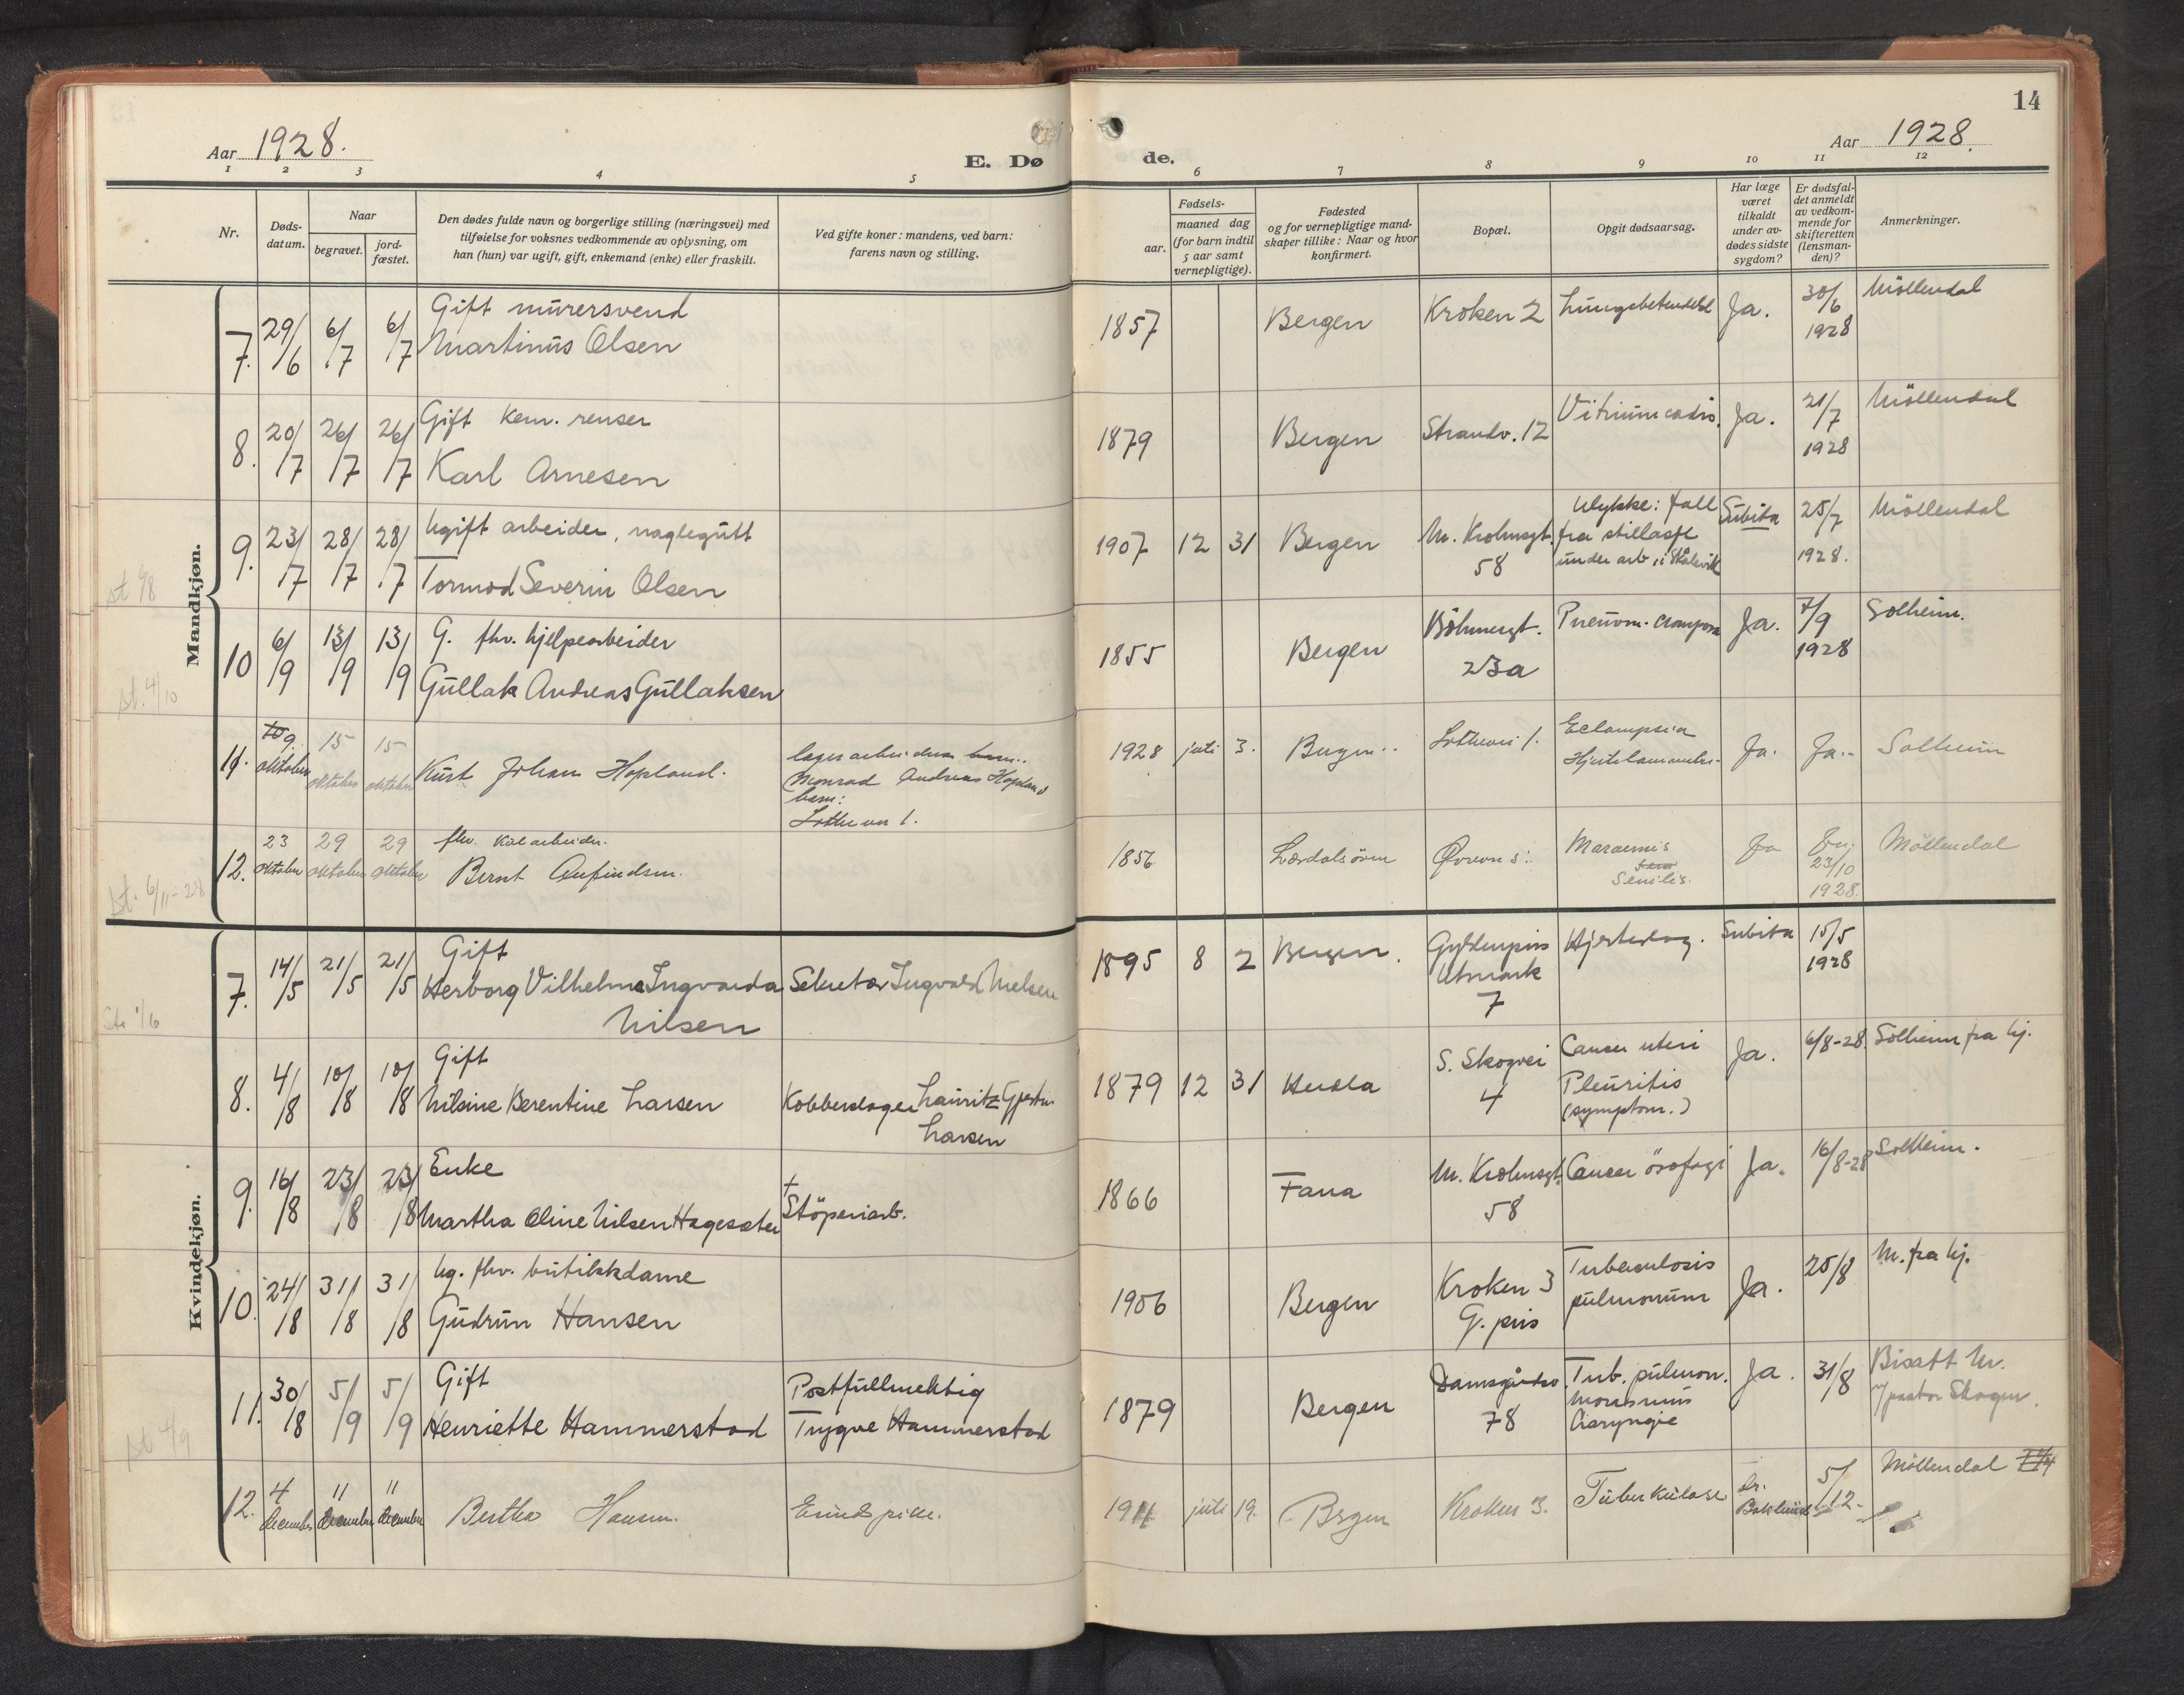 14
Aar 1928.
E. Dø
de.
Aar 1928.
1 2 3 4 5 6 7 8 9 10 11 12
Nr.
Døds-
datum.
Naar
begravet.
jord-
fæstet.
Den dødes fulde navn og borgerlige stilling (næringsvei) med
tilføielse for voksnes vedkommende av oplysning, om
han (hun) var ugift, gift, enkemand (enke) eller fraskilt.
Ved gifte koner: mandens, ved barn:
farens navn og stilling.
Fødsels-
aar.
maaned dag
(for barn indtil
5 aar samt
vernepligtige).
Fødested
og for vernepligtige mand-
skaper tillike: Naar og hvor
konfirmert.
Bopæl.
Opgit dødsaarsag.
Har læge
været
tilkaldt
under av-
dødes sidste
sygdom?
Er dødsfal-
det anmeldt
av vedkom-
mende for
skifteretten
(lensman-
den)?
Anmerkninger.
Mandkjøn.
7. 29/6 6/7 6/7
Gift murersvend
Martinus Olsen
1857 Bergen Kroken 2 Lungebetendelse Ja. 30/6 1928 Möllendal
8. 20/7 26/7 26/7
Gift kem. renser
Karl Arnesen
1879 Bergen Strandv. 12 Vitium cordis. Ja. 21/7 1928 Möllendal
9. 23/7 28/7 28/7
Ugift arbeider, naglegutt
Tormod Severin Olsen
1907 12 31 Bergen M. Krohnsgt. 58
Ulykke: fall
fra stillasje
under arb. i
Subita 25/7 1928. Möllendal
st.
10 6/9 13/9 13/9
G. fhv. hjelpearbeider
Gullak Andreas Gullaksen
1855 Bergen Böhmergt. 23a Pneum. crouposa Ja. 7/9 1928 Solheim.
st. 4/10
11. 9. oktober 15 oktober 15 oktober
Kurt Johan Hopland.
lagerarbeider
Monrad Andreas Hopland
barn:
1.
1928 juli 3. Bergen 1.
Eclampsia
Ja. Ja. Solheim
12. 23 oktober 29 oktober 29 oktober
fhv. kolarbeider.
Bernt
1856 Lærdalsören
Marasmus
Senilis.
Ja 23/10 1928. Möllendal
st. 6/11-28
Kvindekjøn.
7. 14/5 21/5 21/5
Gift
Herborg Vilhelma Ingvarda
Nilsen
Sekretær Ingvald Nielsen
1895 8 2 Bergen.
Gyldenpris
Utmark
7
Hjerteslag. Subita 15/5 1928
8. 4/8 10/8 10/8
Gift
Nilsine Berentine Larsen
Kobberslager Lauritz
Larsen
1879 12 31 Herdla
S. Skogvei
4
Cancer uteri
Pleuritis
(symptom.)
Ja. 6/8-28. Solheim fra hj.
9. 16/8 23/8 23/8
Enke
Martha Oline Nilsen Hagesæter
†
Støperiarb.
1866 Fana M. Krohnsgt. 58 Cancer ösofagi Ja. 16/8-28 Solheim.
10. 24/8 31/8 31/8
Ug. fhv. butikkdame
Gudrun Hansen
1906 Bergen
Kroken 3
G. pris
Tuberculosis
pulmonum
Ja. 25/8 M. fra hj.
11. 30/8 5/9 5/9
Gift
Henriette Hammerstad
Postfullmektig
Trygve Hammerstad
1879 Bergen
Damsgårdsv.
78
Tub. pulmon.
Ja. 31/8
Bisatt M.
v/ pastor Skagen.
12. 4 december 11 december 11 december
Bertha Hansen.
juli 19. Bergen Kroken 3. Tuberkulose
Dr.
5/12- Möllendal